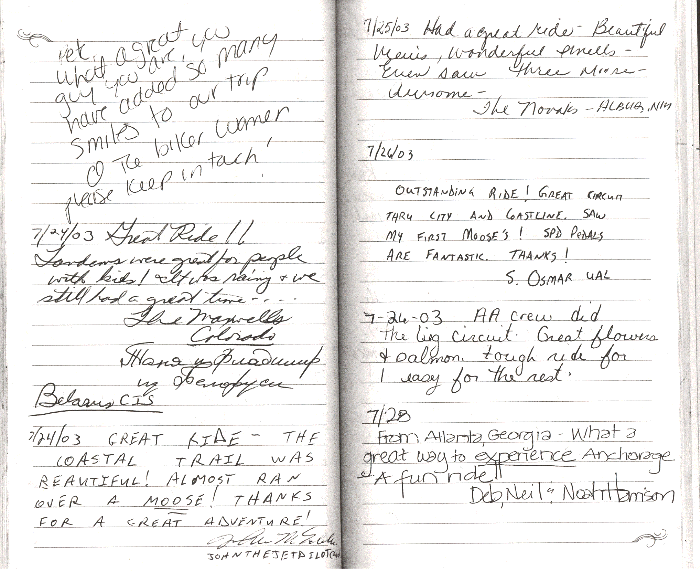 what a great
guy you are, you
have added so many
smiles to our trip
The biker women
please keep in touch!
7/24/03 Great Ride!!
Tandems were great for people
with kids! It was raing & we
still had a great time-....
The Maxwells
Colorado
из Беларуси
Belarus CIS
7/24/03 GREAT RIDE - THE
COASTAL TRAIL WAS
BEAUTIFUL! ALMOST RAN
OVER A MOOSE! THANKS
FOR A GREAT ADVENTURE!
7/25/03 Had a great ride - Beautiful
Views, Wonderful smells -
Even saw three Moose -
Awesome -
The Novaks - ALBUQ, NM
7/26/03
OUTSTANDING RIDE! GREAT CIRCUIT
THRU CITY AND COASTLINE. SAW
MY FIRST MOOSE'S! SPD PEDALS
ARE FANTASTIC. THANKS!
S. OSMAR UAL
7-26-03 AA crew did
the big circuit. Great flowers
& salmon. tough ride for
1 easy for the rest.
7/28
From Atlanta, Georgia - What a
great way to experience Anchorage
A fun ride!!
Deb, Neil & Noah Harrison